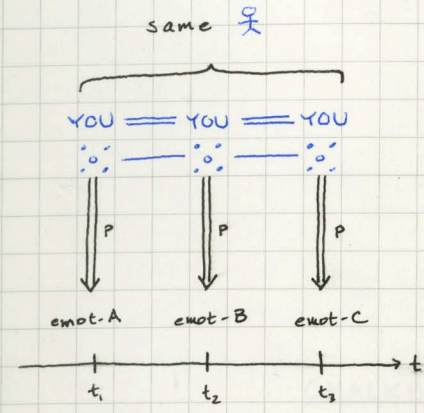 same
YOU YOU YOU
P P P
emot-A emot-B emot-C
t
t₁ t₂ t₃